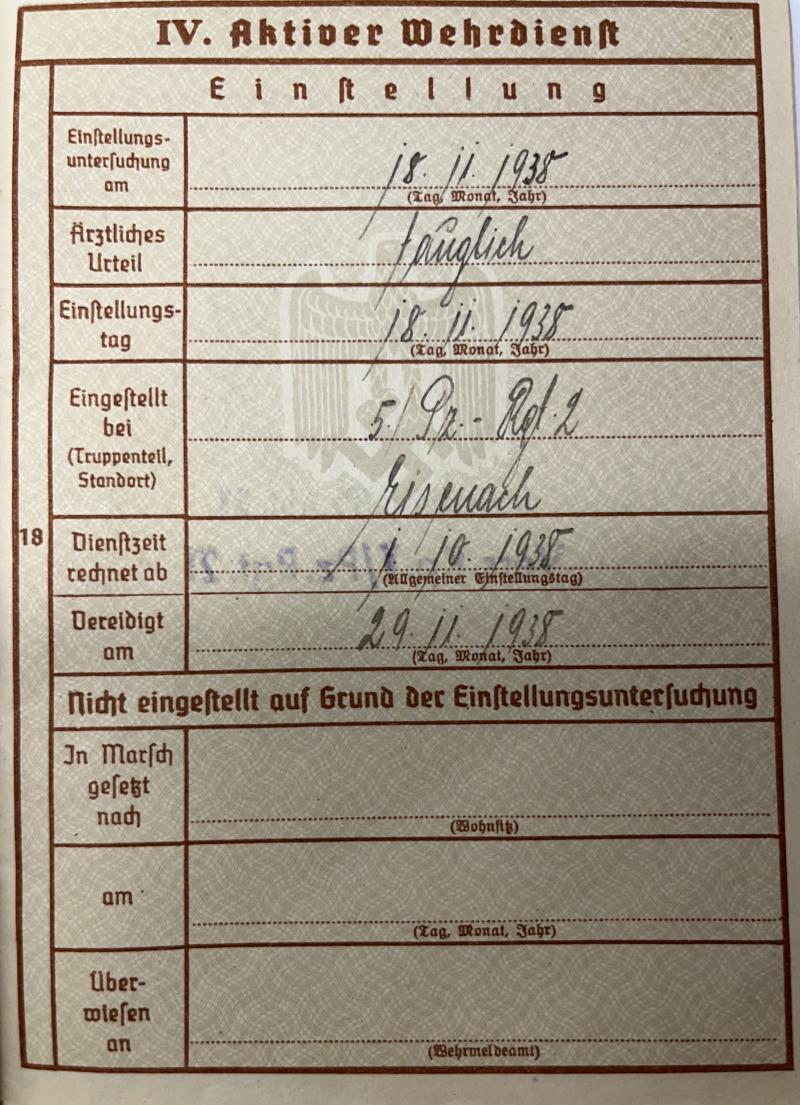 IV. Aktiver Wehrdienst
Einstellung
Einstellungs-
untersuchung
am
18. 11. 1938
(Tag, Monat, Jahr)
Ärztliches
Urteil
tauglich
Einstellungs-
tag
18. 11. 1938
(Tag, Monat, Jahr)
Eingestellt
bei
(Truppenteil,
Standort)
5./Pz.-Rgt. 2
Eisenach
18
Dienstzeit
rechnet ab
1. 10. 1938
(Allgemeiner Einstellungstag)
Vereidigt
am
29. 11. 1938
(Tag, Monat, Jahr)
Nicht eingestellt auf Grund der Einstellungsuntersuchung
In Marsch
gesetzt
nach
(Wohnsitz)
am
(Tag, Monat, Jahr)
Über-
wiesen
an
(Wehrmeldeamt)